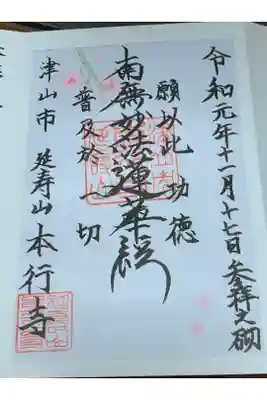 令和元年十一月十七日参拝之砌
願以此功徳
南無妙法蓮華経
普及於一切
津山市 延寿山 本行寺